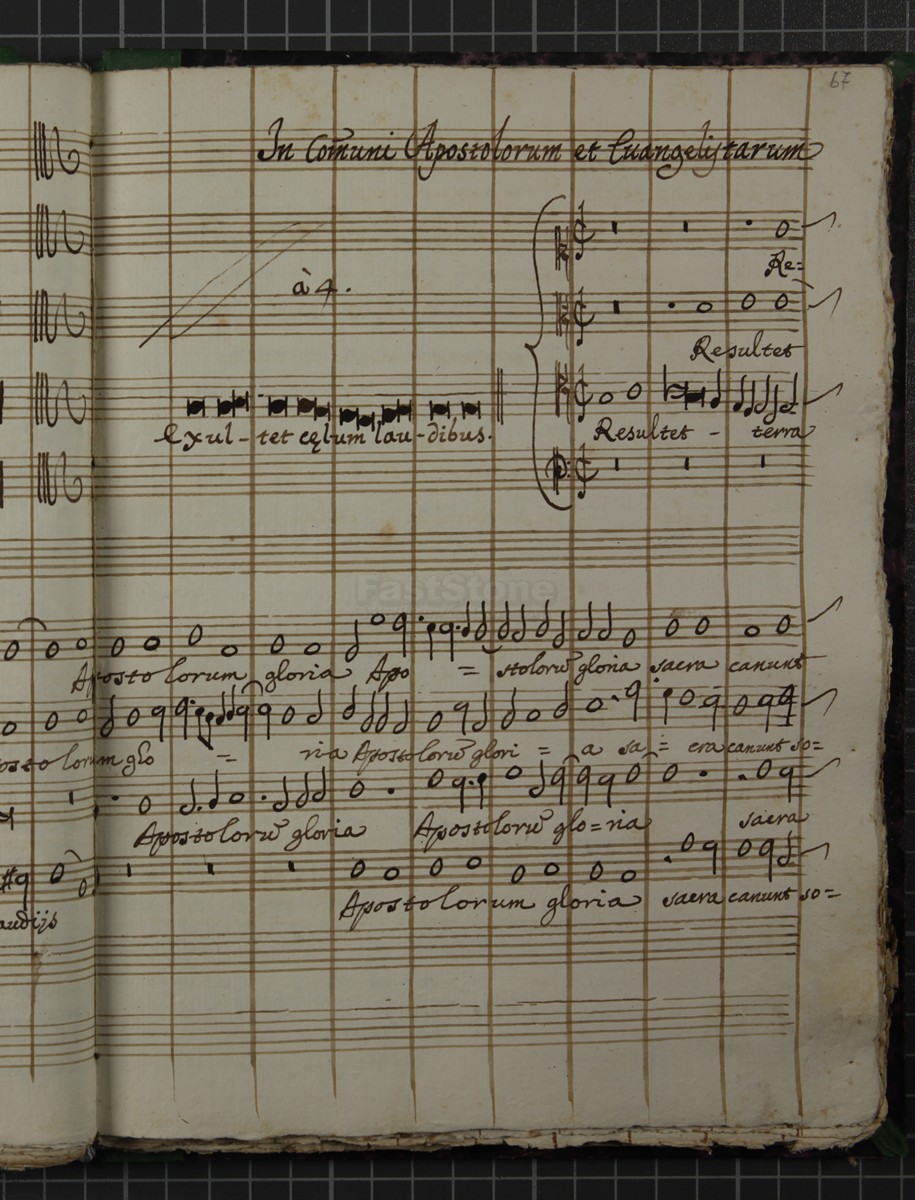 67
In Com̃uni Apostolorum et Euangelistarum
Re=
à 4.
Resultet
Exul - tet cęlum lau - dibus.
Resultet - terra
FastStone
Apostolorum gloria Apo = stolorũ gloria sacra canunt
ria Apostolorũ glori = a sa = cra canunt so=
Apostolorũ gloria Apostolorũ glo=ria sacra
Apostolorum gloria sacra canunt so=